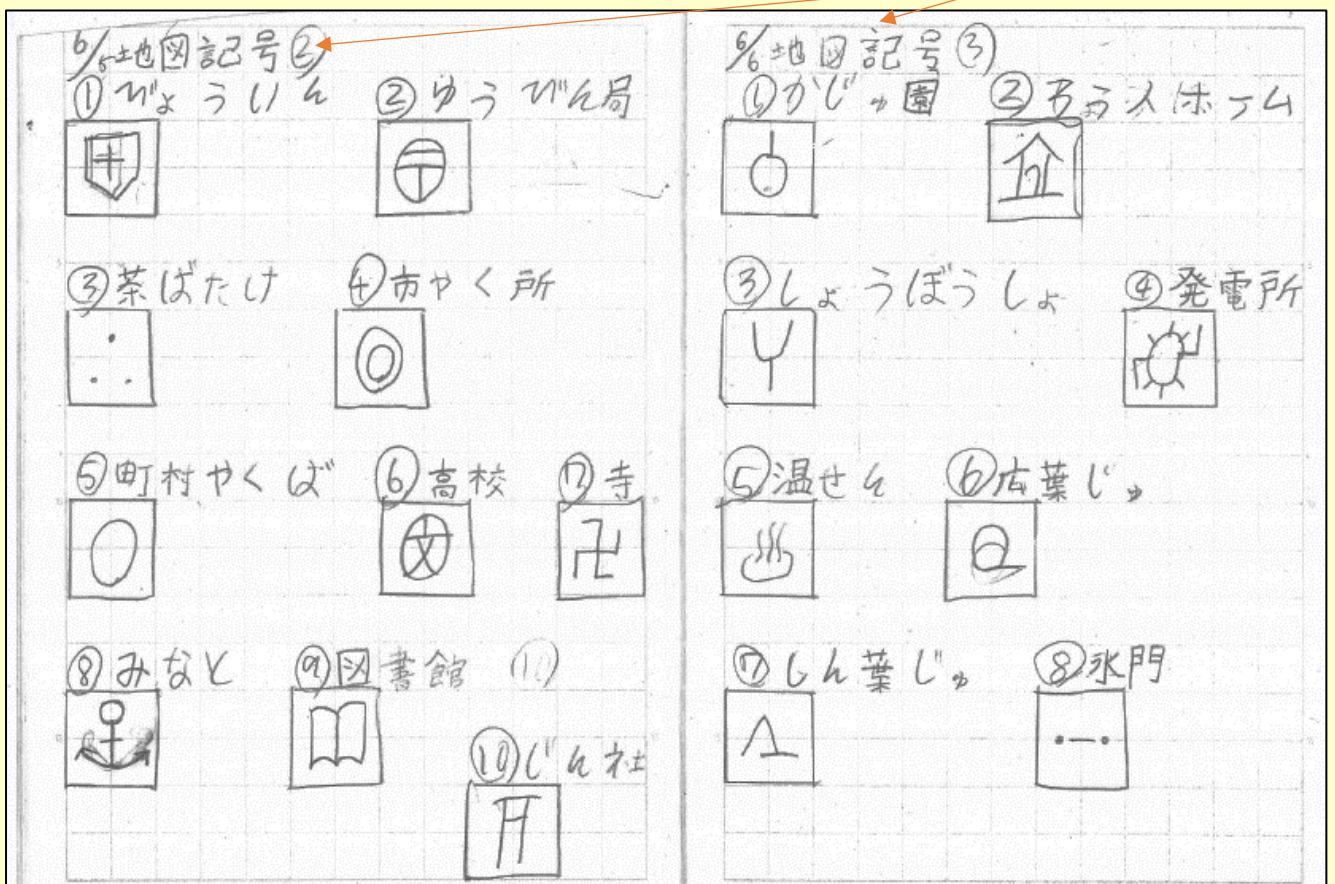 6/5地図記号②
①びょういん ②ゆうびん局
③茶ばたけ ④市やく所
⑤町村やくば ⑥高校 ⑦寺
文 卍
⑧みなと ⑨図書館 ⑩
⑩じん社
6/6地図記号③
①かじゅ園 ②ろう人ホーム
③しょうぼうしょ ④発電所
⑤温せん ⑥広葉じゅ
⑦しん葉じゅ ⑧水門